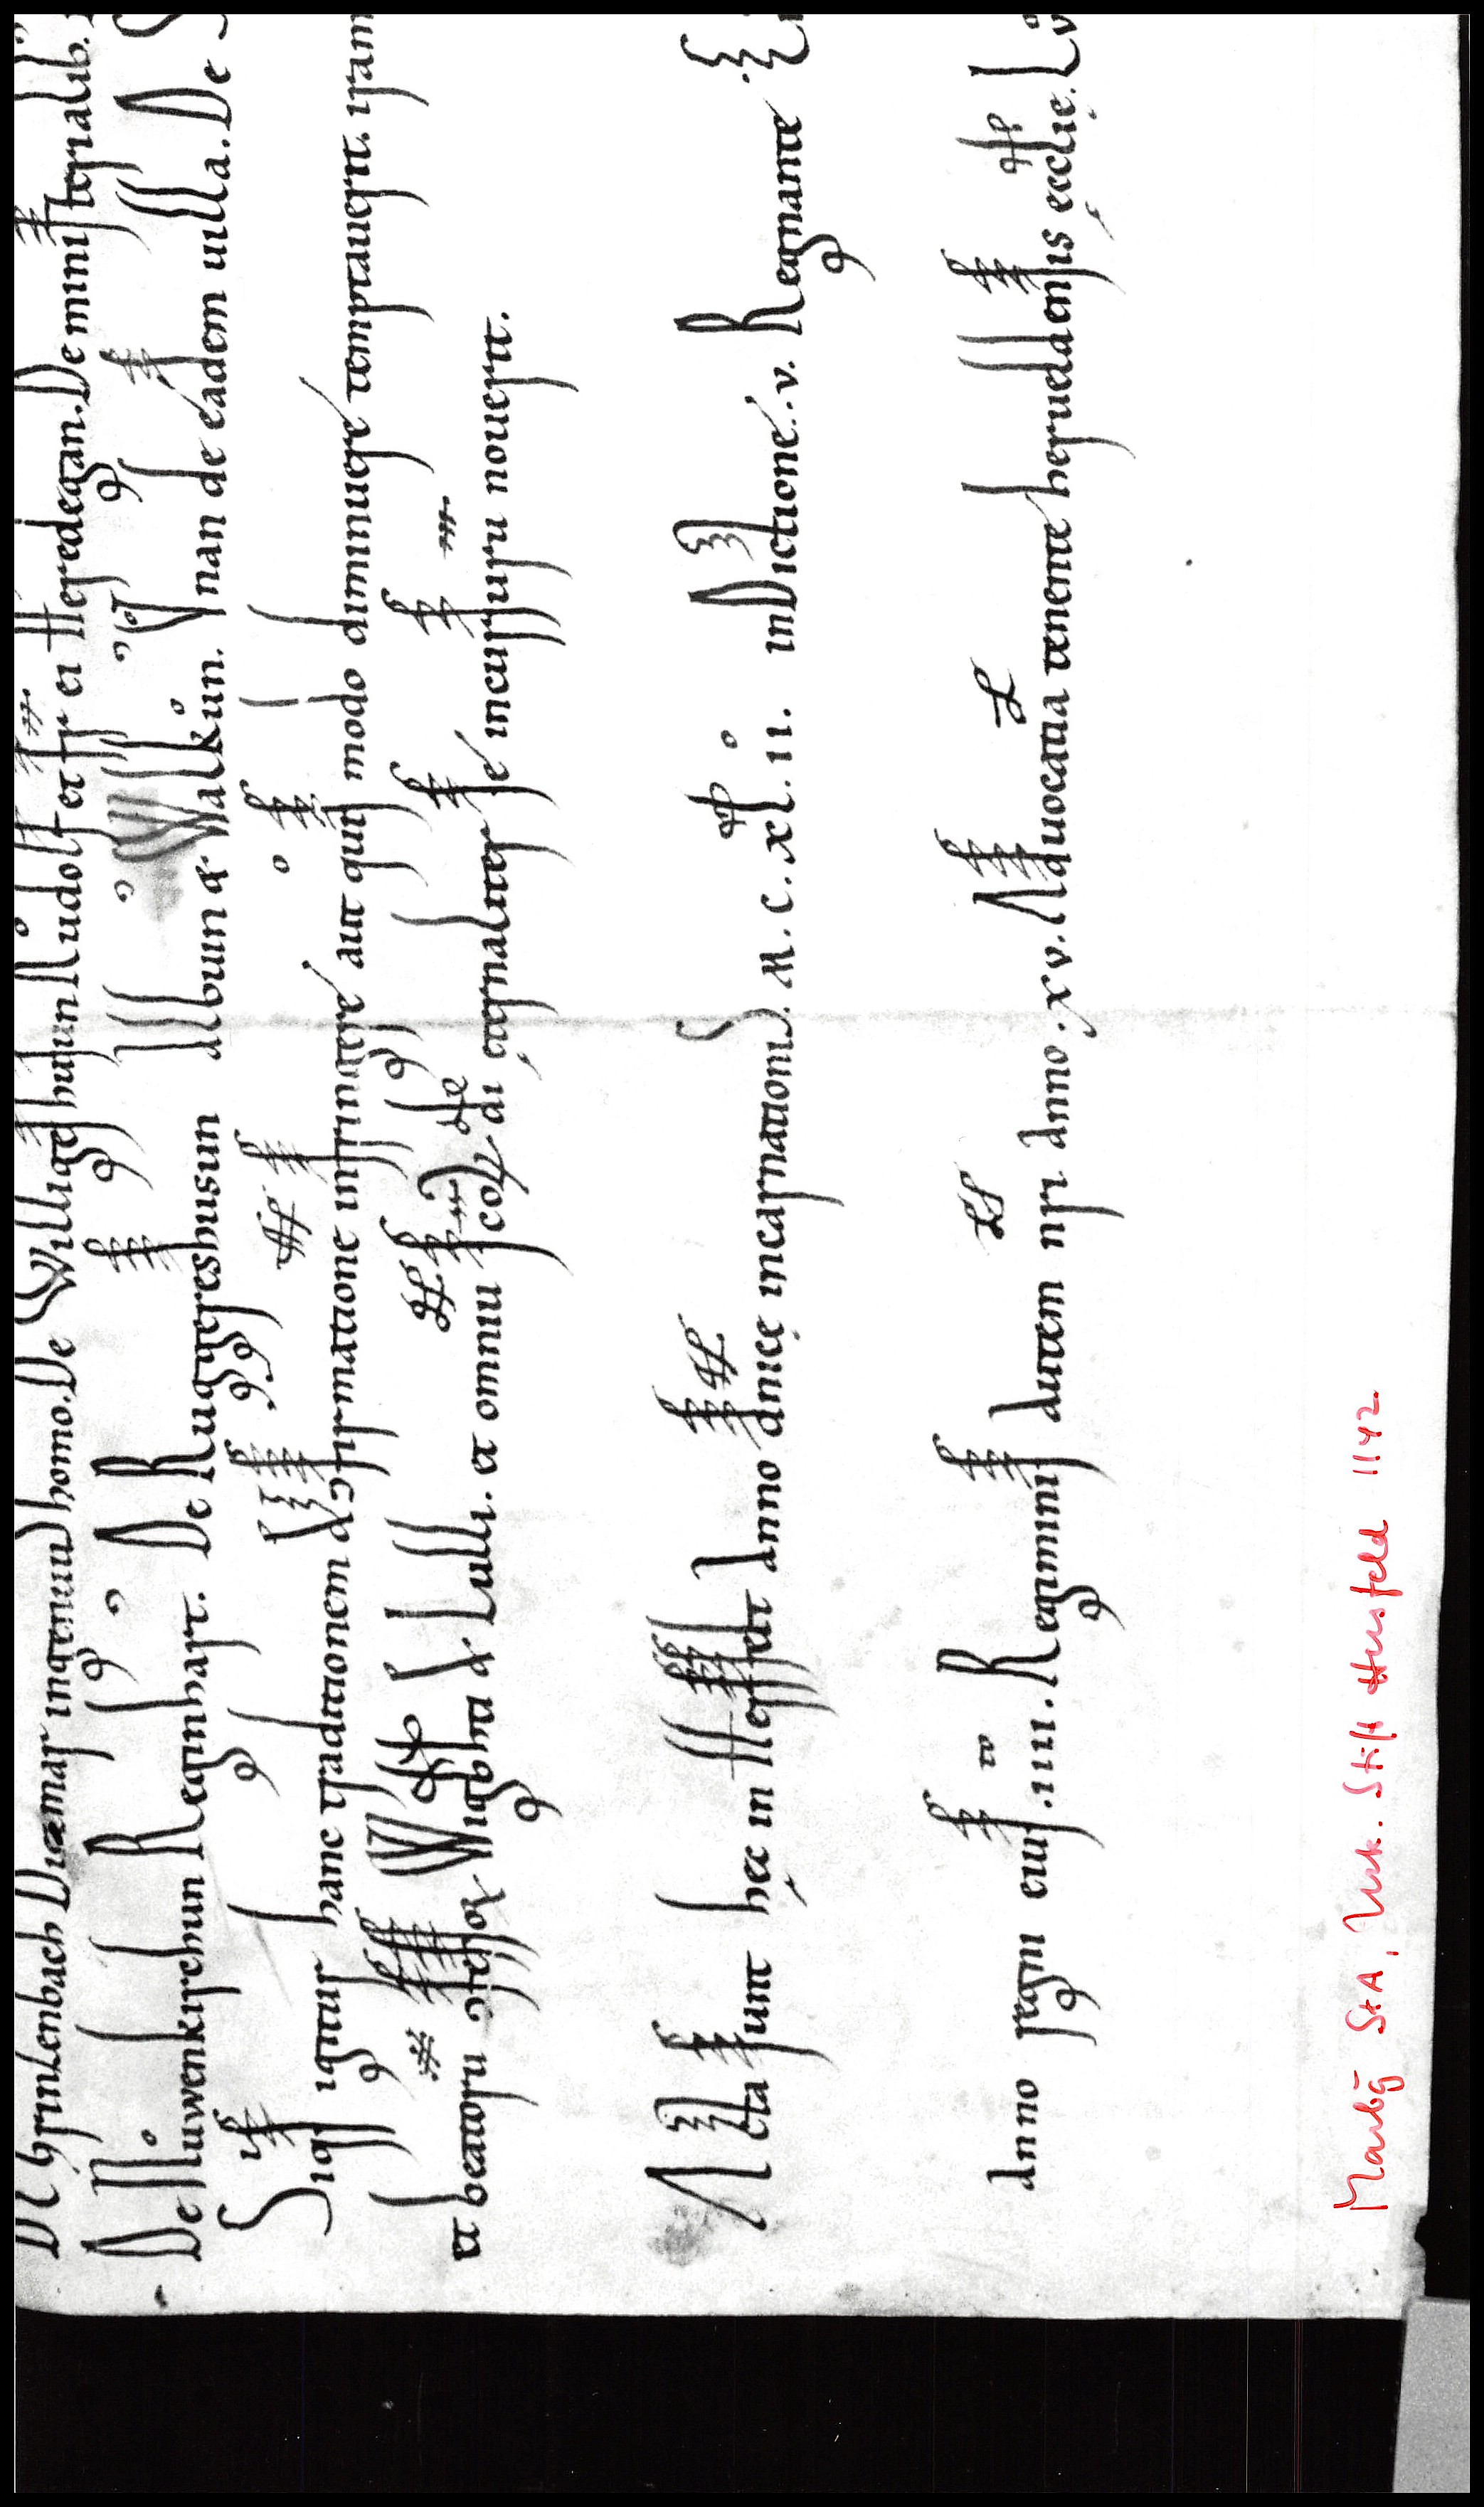 De brinkenbach Dietmar ingenuus homo. De Willigeshusun Růdolf et fr̄ ei Heredegan. De ministerialib.
De Nůwenkirchun Reginhart. De Ruggereshusun Albuin & Walkůn. Wnan de eadem uilla. De
Siqs igitur hanc traditionem & ɔfirmatione infrinͣgere aut quis modo diminuere temptauerit. iram
et beatoru ɔfessoꝝ Wigbˢti & Lulli. et omniu scoꝝ di ęternaliter se incursuru nouerit.
Acta sunt hęc in Hersfelt Anno dnicę incarnationis. M. C. XL. II. inDictione. v. Regnante
Anno regni eius. IIII. Regiminis autem nri Anno. XV. Aduocatia tenente herueldensis ecclię.
Marbg StA, Urk. Stift Hersfeld 1142